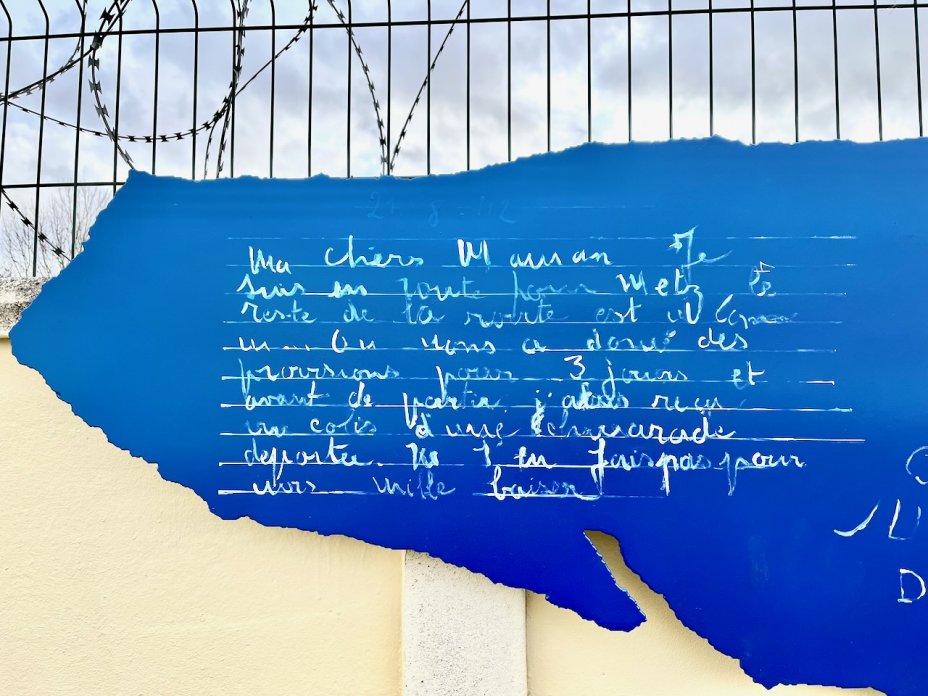 21 8 42
Ma chers Maman Je
suis en route pour Metz le
reste de la route est
On nous a donné des
provisions pour 3 jours et
avant de partir j'avais reçu
un colis d'une camarade
deportee. Ne t'en fais pas pour
mille baisers
D